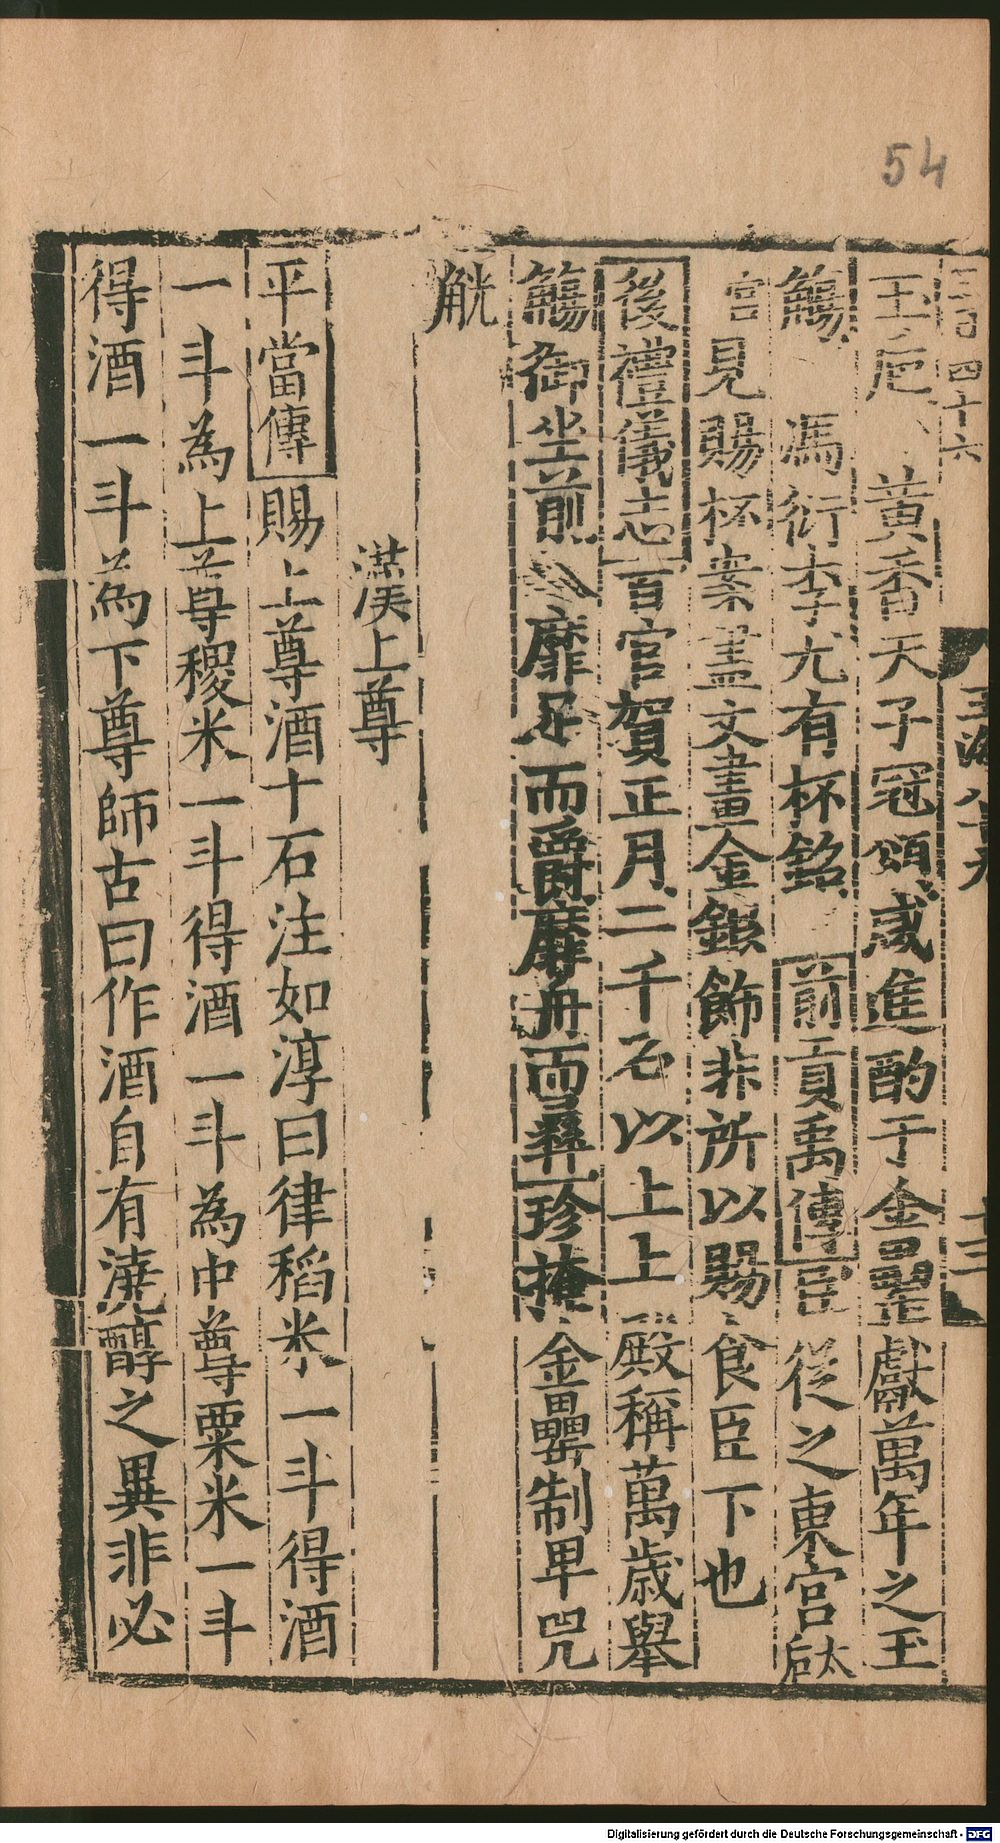 54
三百四十六
玉海八十九
十三
玉巵 黃香天子冠頌咸進酌于金罍獻萬年之玉
觴 馮衍李尤有杯銘 前貢禹傳臣從之東宮太后
宮見賜杯案盡文畫金銀飾非所以賜食臣下也
後禮儀志百官賀正月二千石以上上殿稱萬歲舉
觴御坐前 靡足而爵靡舟而彝珍掩金罍制卑咒
觥
漢上尊
平當傳賜上尊酒十石注如淳曰律稻米一斗得酒
一斗為上尊稷米一斗得酒一斗為中尊粟米一斗
得酒一斗為下尊師古曰作酒自有澆醇之異非必
Digitalisierung gefördert durch die Deutsche Forschungsgemeinschaft - DFG